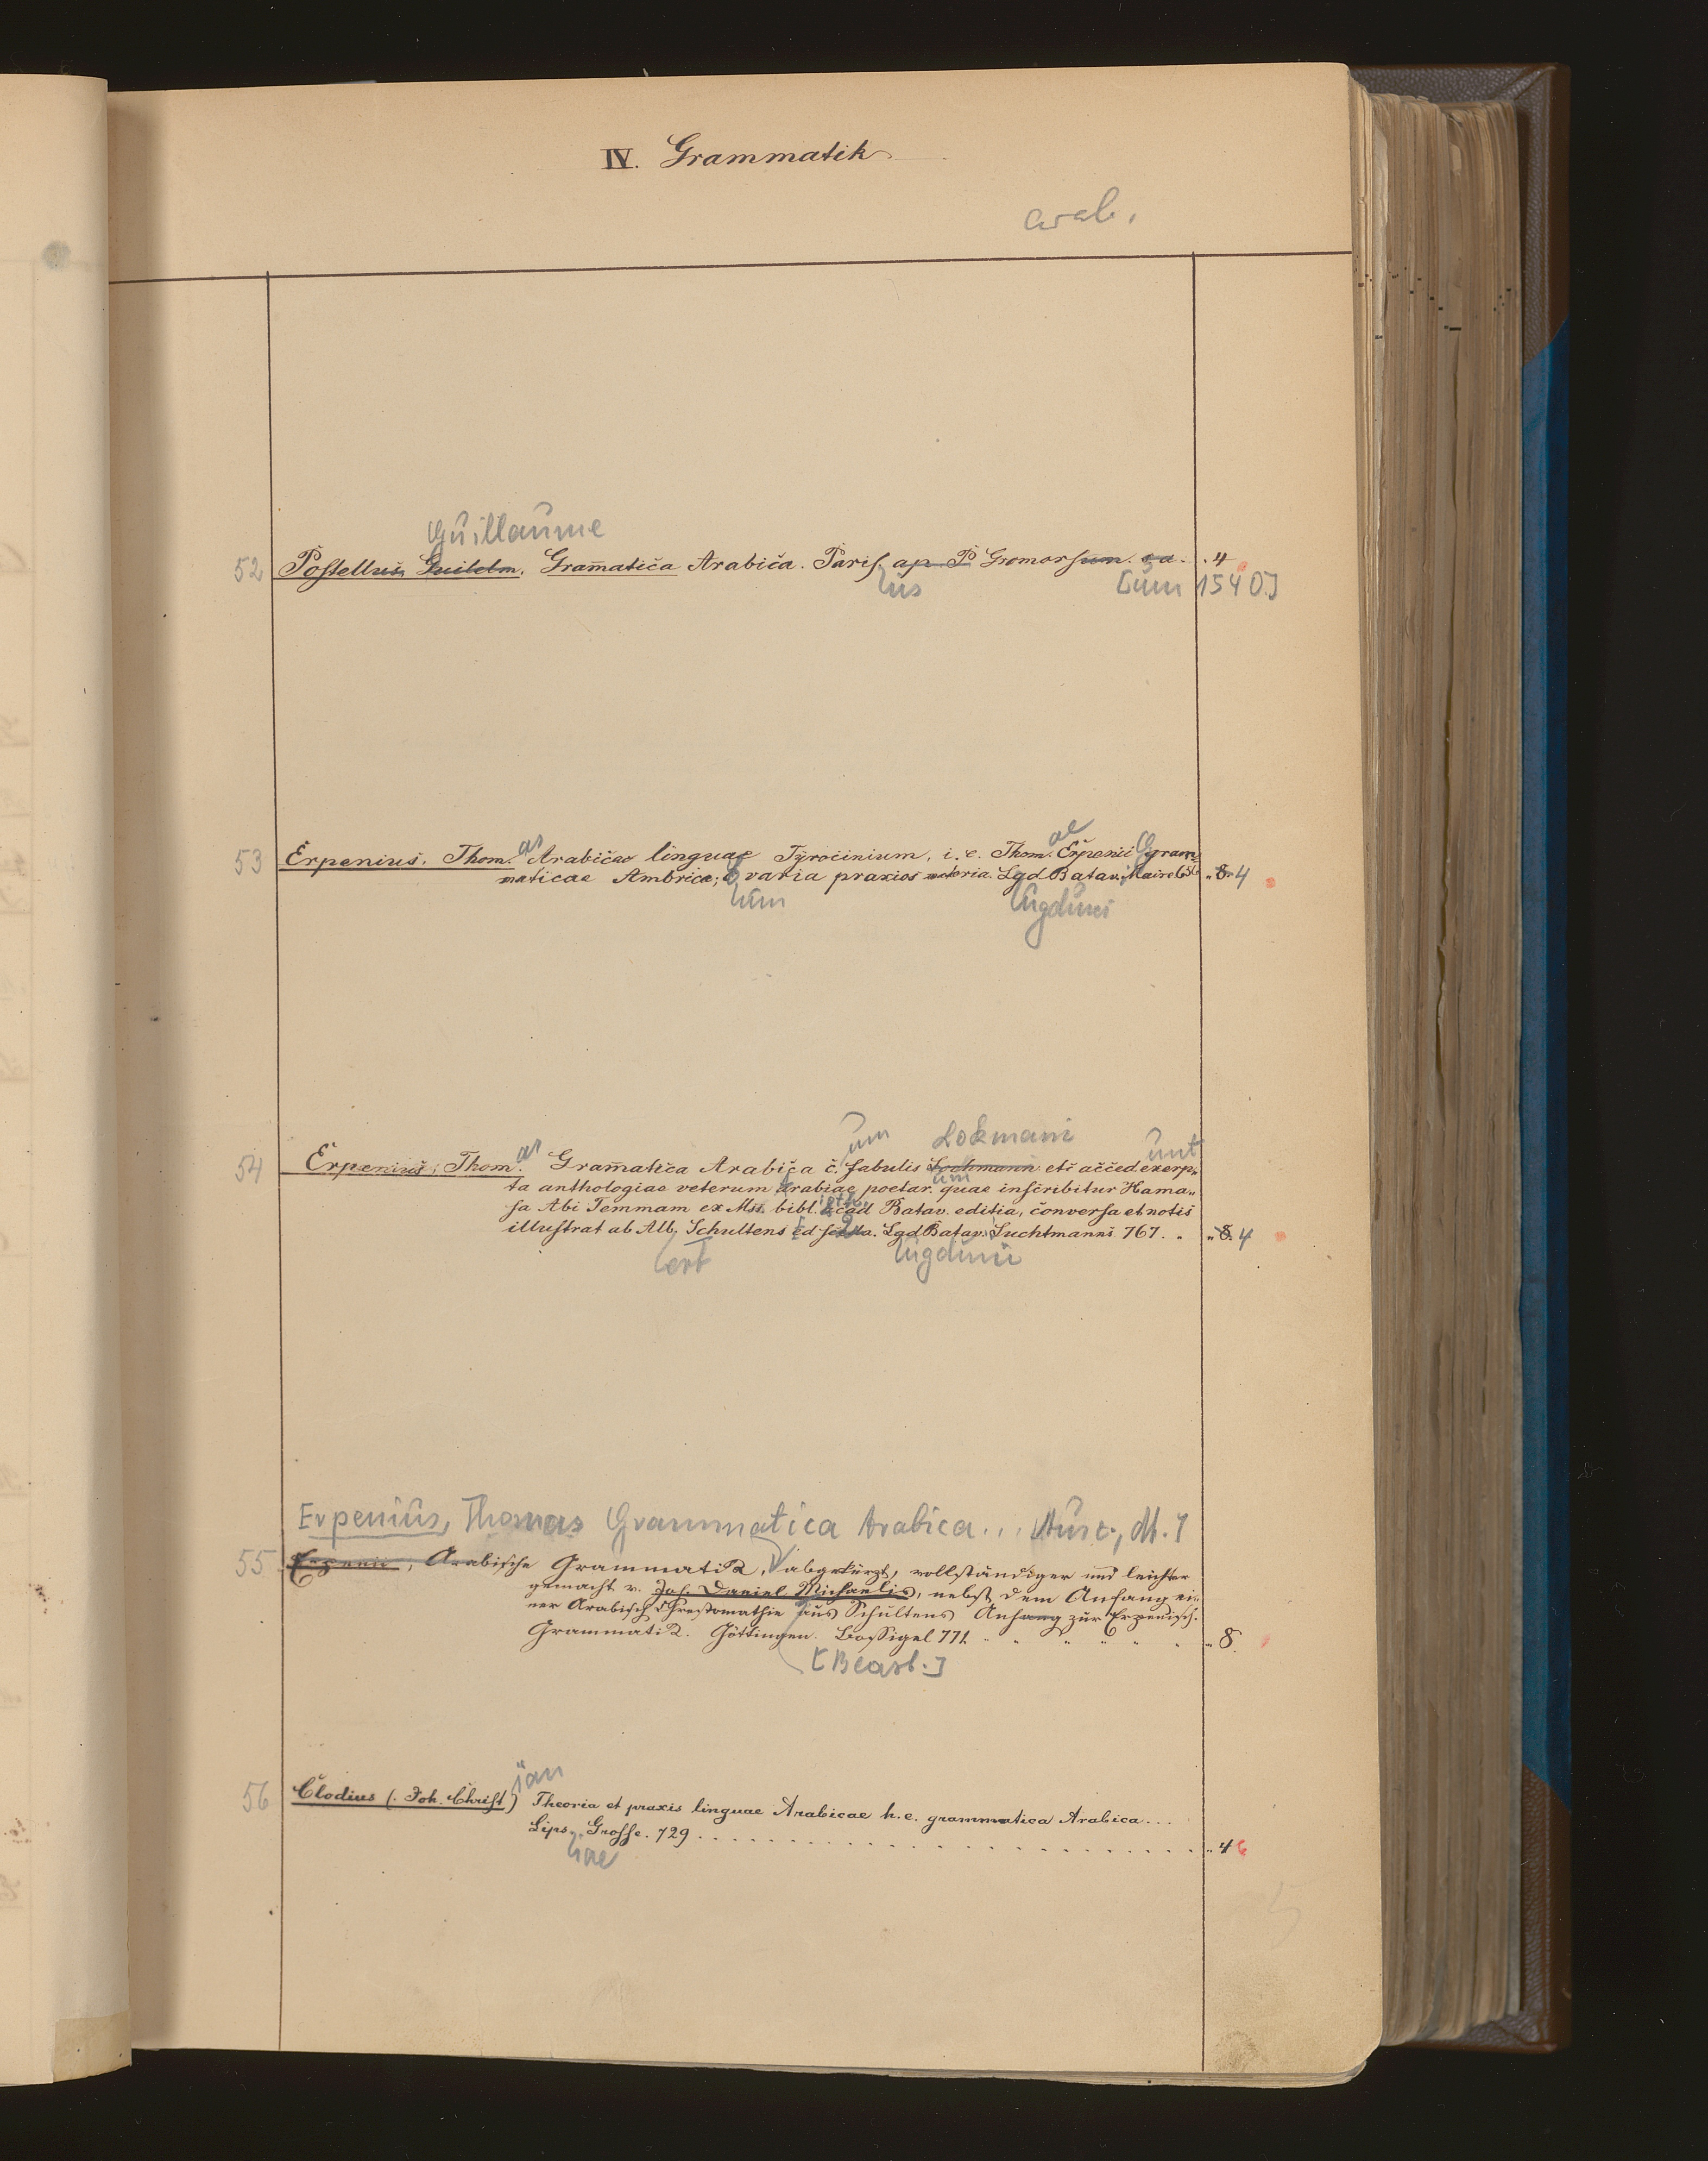 IV. Grammatik
arab.
Guillaume
52 Postellus, Guilelm. Gram̄atica Arabica. Paris. ap. P Gromorsum. sa. . 4
ius [um 1540.]
as ae G
53 Erpenius, Thom. Arabicae linguae Tyrocinium, i. e. Thom. Erpenii gram-
maticae Arabice; c varia praxios Lgd Batav. Maire „ 8. 4
um Lugduni
as um Lokmani unt
54 Erpenius, Thom. Gram̄atica Arabica c. fabulis Lochmann etc acced exerp„
um
ta anthologiae veterum Arabiae poetar. quae inscribitur Hama„
sa Abi Temmam ex Mss. bibl. Acad Batav. editia, conversa et notis
illustrat ab Alb. Schultens Ed Lgd Batav. Luchtmanns 767. „ „ 8. 4
ert Lugduni
Erpenius, Thomas Grammatica Arabica... Ausz., M. 1
55 Erpenii, Arabische Grammatik, abgekürzt, vollständiger und leichter
gemacht v. Joh. Daniel Michaelis, nebst dem Anfang ei-
ner Arabisch Chrestomathie aus Schultens Anhang zur Erpenisch.
Grammatik. Göttingen. Bossigel 771. „ „ „ „ „ „ „ 8.
[Bearb.]
ian
56 Clodius (. Joh. Christ) Theoria et praxis linguae Arabicae h. e. grammatica Arabica...
Lips. Grosse. 729 . . . . . . . . . . . . . . . . . . . . „ 4
iae